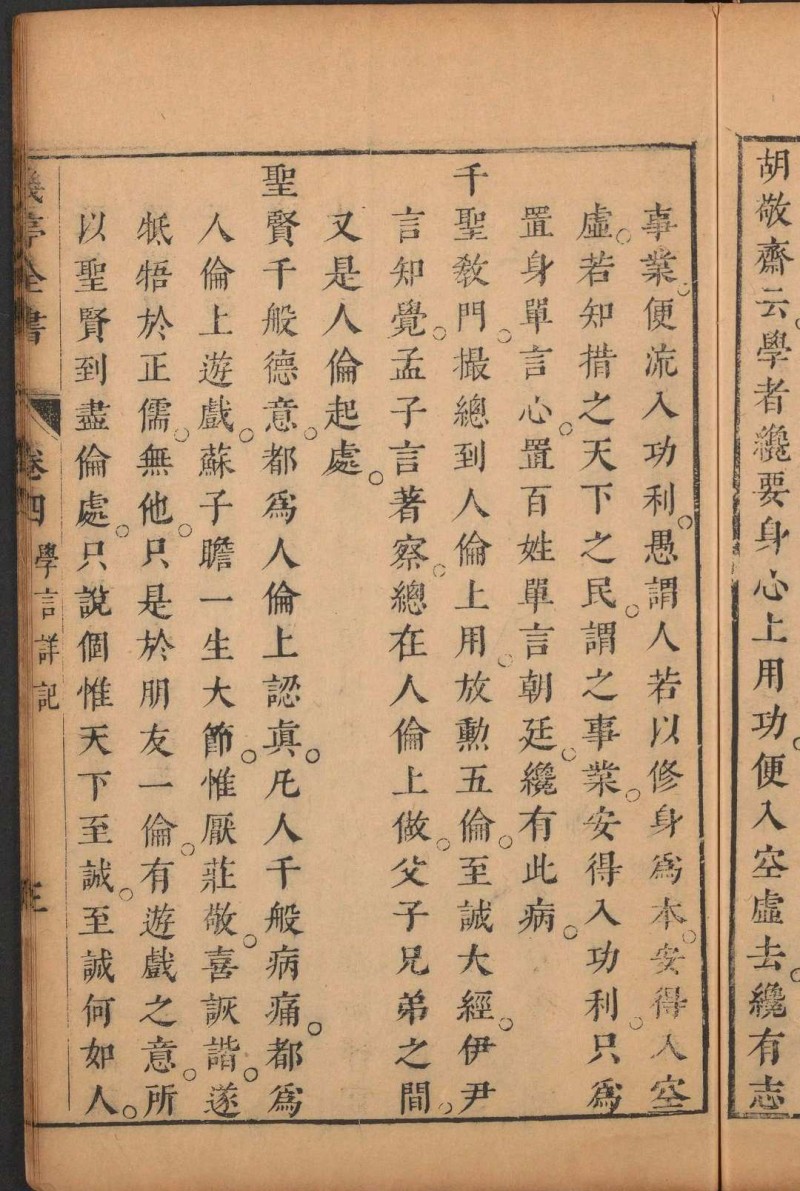 胡敬齋云學者纔要身心上用功便入空虛去纔有志
事業便流入功利愚謂人若以修身爲本安得入空
虛若知措之天下之民謂之事業安得入功利只爲
置身單言心置百姓單言朝廷纔有此病
千聖敎門撮總到人倫上用放勳五倫至誠大經伊尹
言知覺孟子言著察總在人倫上做父子兄弟之間
又是人倫起處
聖賢千般德意都爲人倫上認眞凡人千般病痛都爲
人倫上遊戲蘇子瞻一生大節惟厭莊敬喜詼諧遂
牴牾於正儒無他只是於朋友一倫有遊戲之意所
以聖賢到盡倫處只說個惟天下至誠至誠何如人
幾亭全書 卷四 學言詳記